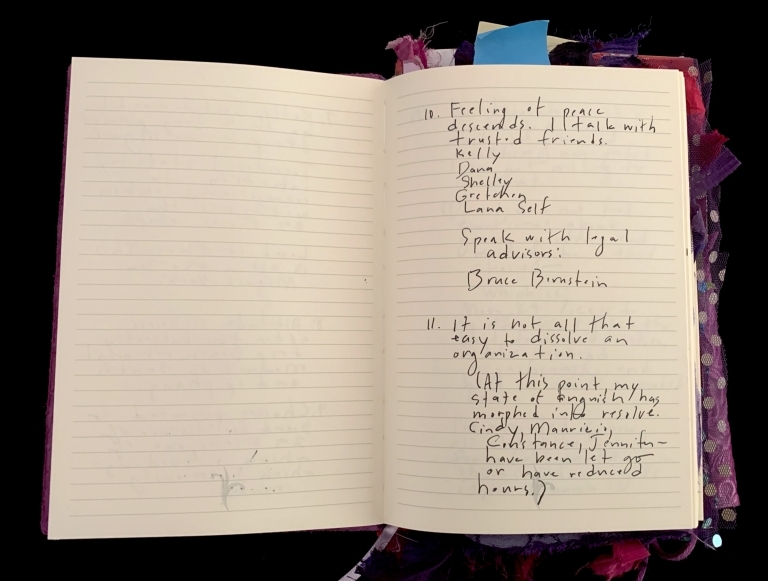 10. Feeling of peace
descends. I talk with
trusted friends.
Kelly
Dana
Shelley
Gretchen
Lana Self
Speak with legal
advisors:
Bruce Bernstein
11. It is not all that
easy to dissolve an
organization.
(At this point, my
state of anguish has
morphed into resolve.
Cindy, Mauricio,
Constance, Jennifer—
have been let go
or have reduced
hours.)